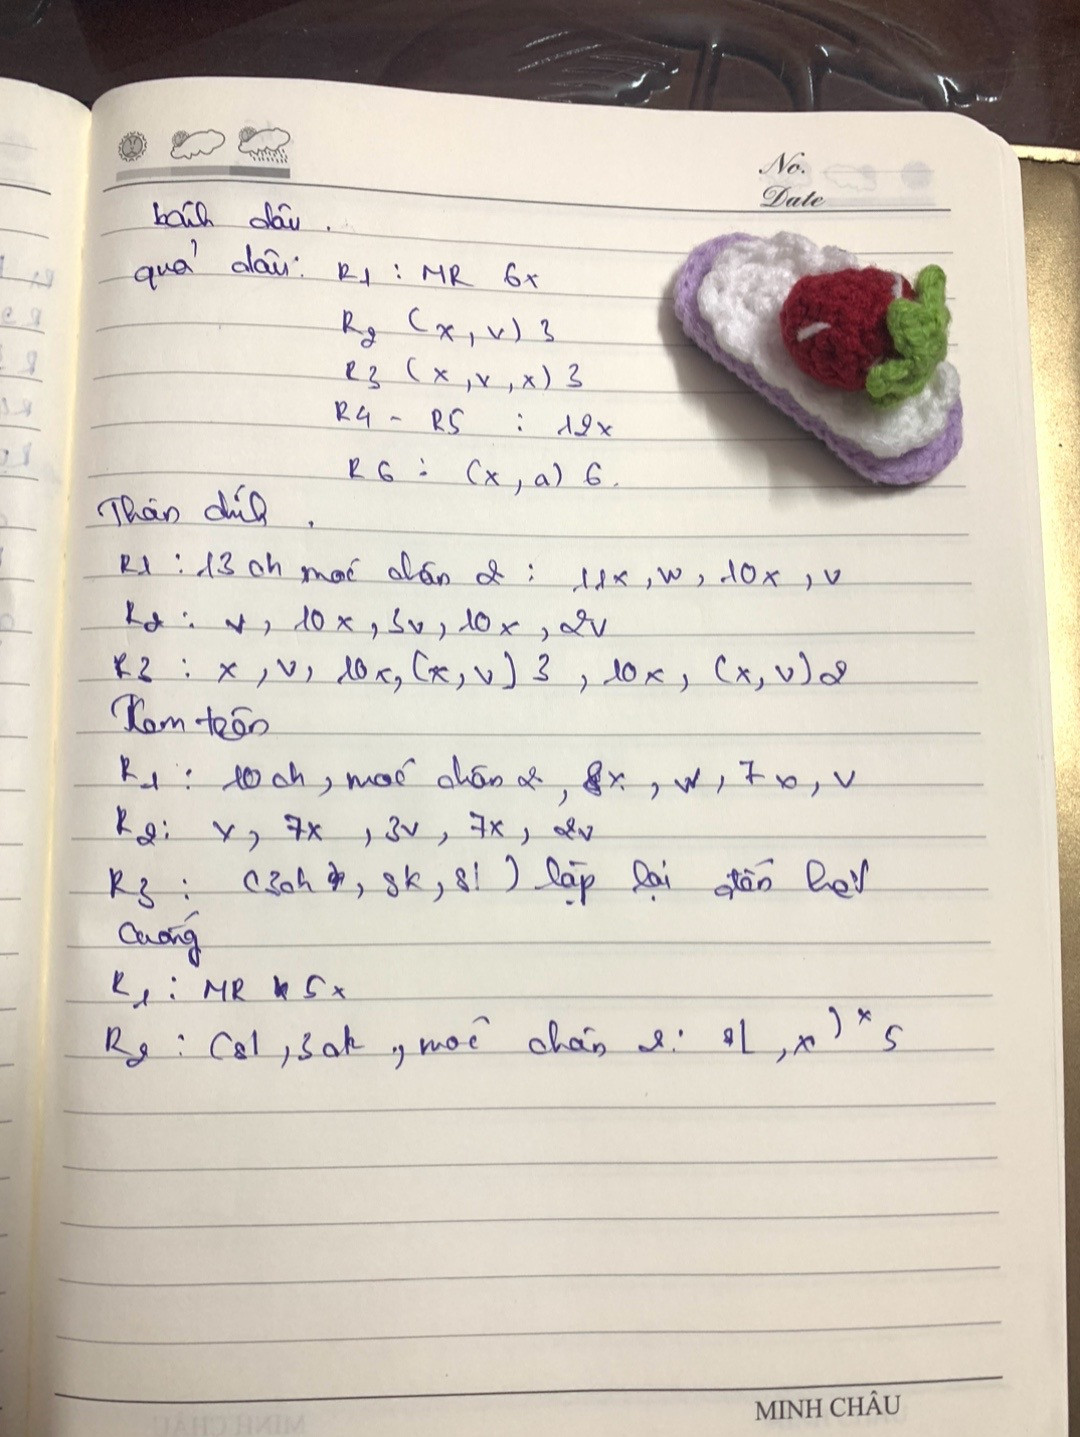 No.
Date
bánh dâu.
quả dâu: R1 : MR 6x
R2 (x, v) 3
R3 (x, v, x) 3
R4 - R5 : 12x
R6 : (x, a) 6.
Thân dích.
R1 : 13 ch móc chân 2 : 11x, w, 10x, v
R2 : v, 10x, 3v, 10x, 2v
R3 : x, v, 10x, (x, v) 3, 10x, (x, v) 2
Kem trên
R1 : 10 ch, móc chân 2, 8x, w, 7x, v
R2: v, 7x, 3v, 7x, 2v
R3 : (3ch, sk, sl) lặp lại đến hết
Cuống
R1 : MR 5x
R2 : (sl, 3ch, móc chân 2: sl, x) x 5
MINH CHÂU